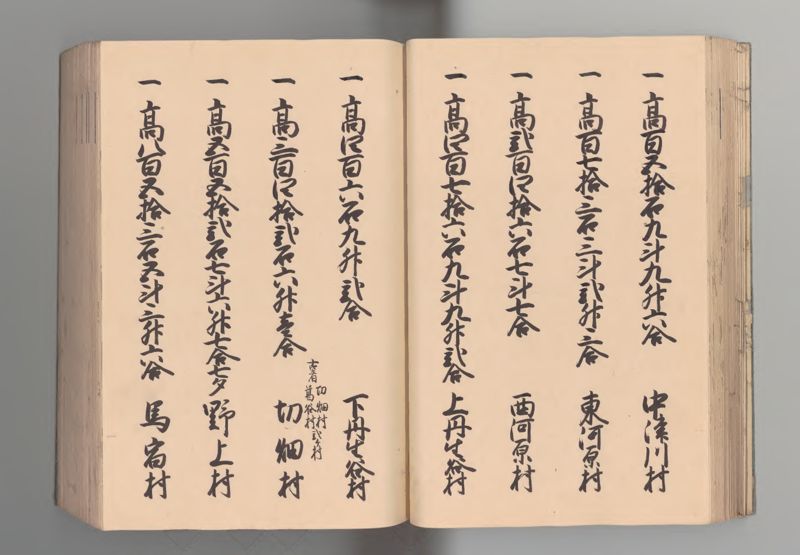 一 高百五拾石九斗九升六合 中湊川村
一 高百七拾三石三斗弐升三合 東河原村
一 高弐百四拾六石七斗七合 西河原村
一 高四百七拾六石九斗九升弐合 上丹生谷村
一 高四百六石九升弐合 下丹生谷村
古者 切畑村 葛谷村 弐ケ村
一 高三百四拾弐石六升壱合 切畑村
一 高五百五拾弐石七斗六升七合七夕 野上村
一 高八百五拾三石五斗三升六合 馬宿村